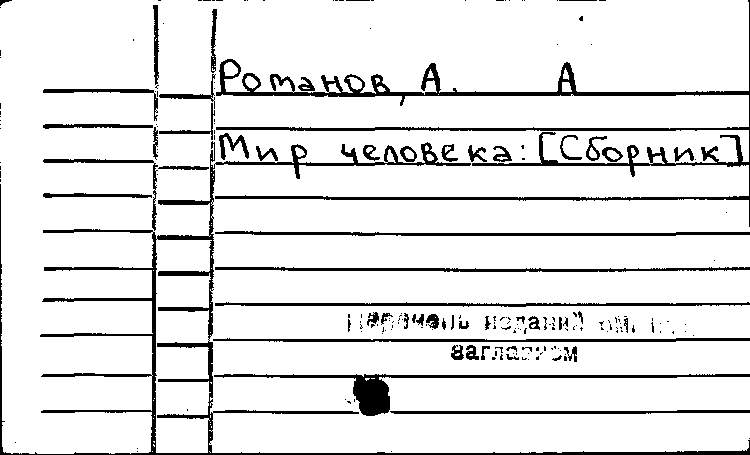 Романов, А. А
Мир человека: [Сборник]
Перечень изданий см. под
заглавием